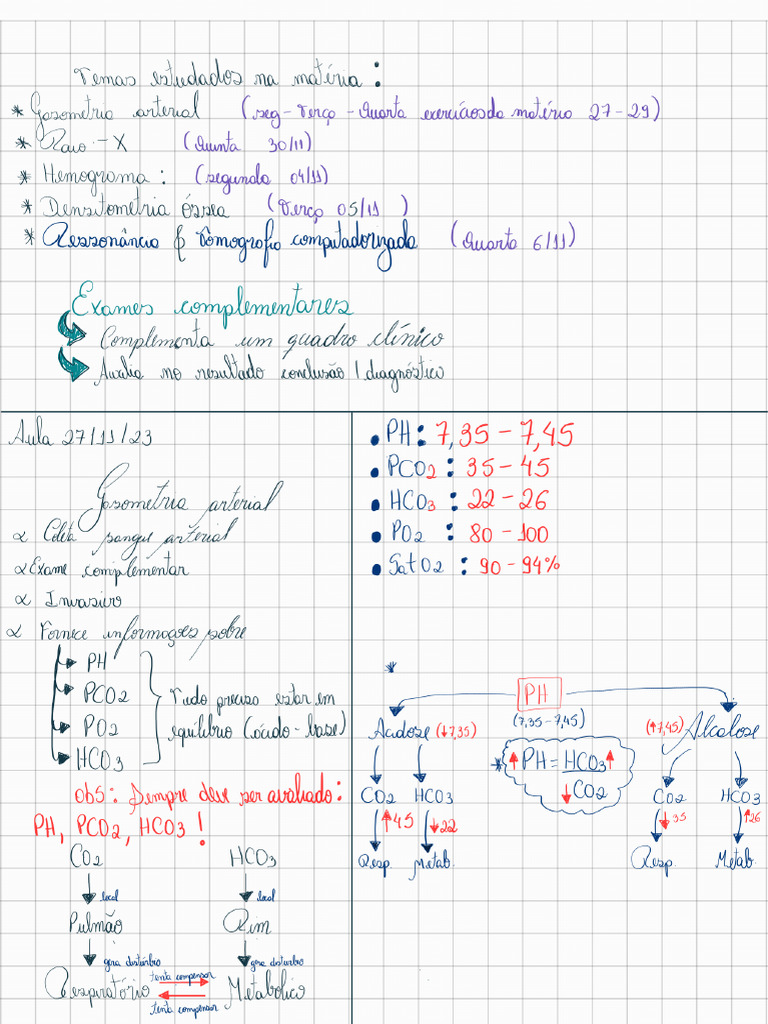 Temas estudados na matéria:
* Gasometria arterial (seg - Terça - Quarta exercícios da matéria 27-29)
* Raio-X (Quinta 30/11)
* Hemograma: (segunda 04/11)
* Densitometria óssea (Terça 05/11)
* Ressonância & Tomografia computadorizada (Quarta 6/11)
Exames complementares
Complementa um quadro clínico
Auxilia no resultado conclusão / diagnóstico
Aula 27/11/23
Gasometria arterial
∝ Coleta sangue arterial
∝ Exame complementar
∝ Invasivo
∝ Fornece informações sobre
PH
PCO2
PO2
HCO3
Tudo precisa estar em
equilíbrio (ácido-base)
obs: Sempre deve ser avaliado:
PH, PCO2, HCO3!
CO2 HCO3
local local
Pulmão Rim
gera distúrbio gera distúrbio
Respiratório tenta compensar Metabólico
tenta compensar
• PH: 7,35 - 7,45
• PCO2: 35 - 45
• HCO3: 22 - 26
• PO2: 80 - 100
• Sat O2: 90 - 94%
*
PH
(7,35 - 7,45)
Acidose (↓7,35) (↑7,45) Alcalose
* ↑PH = HCO3↑
↓CO2
CO2 HCO3 CO2 HCO3
↑45 ↓22 ↓35 ↑26
Resp Metab. Resp. Metab.